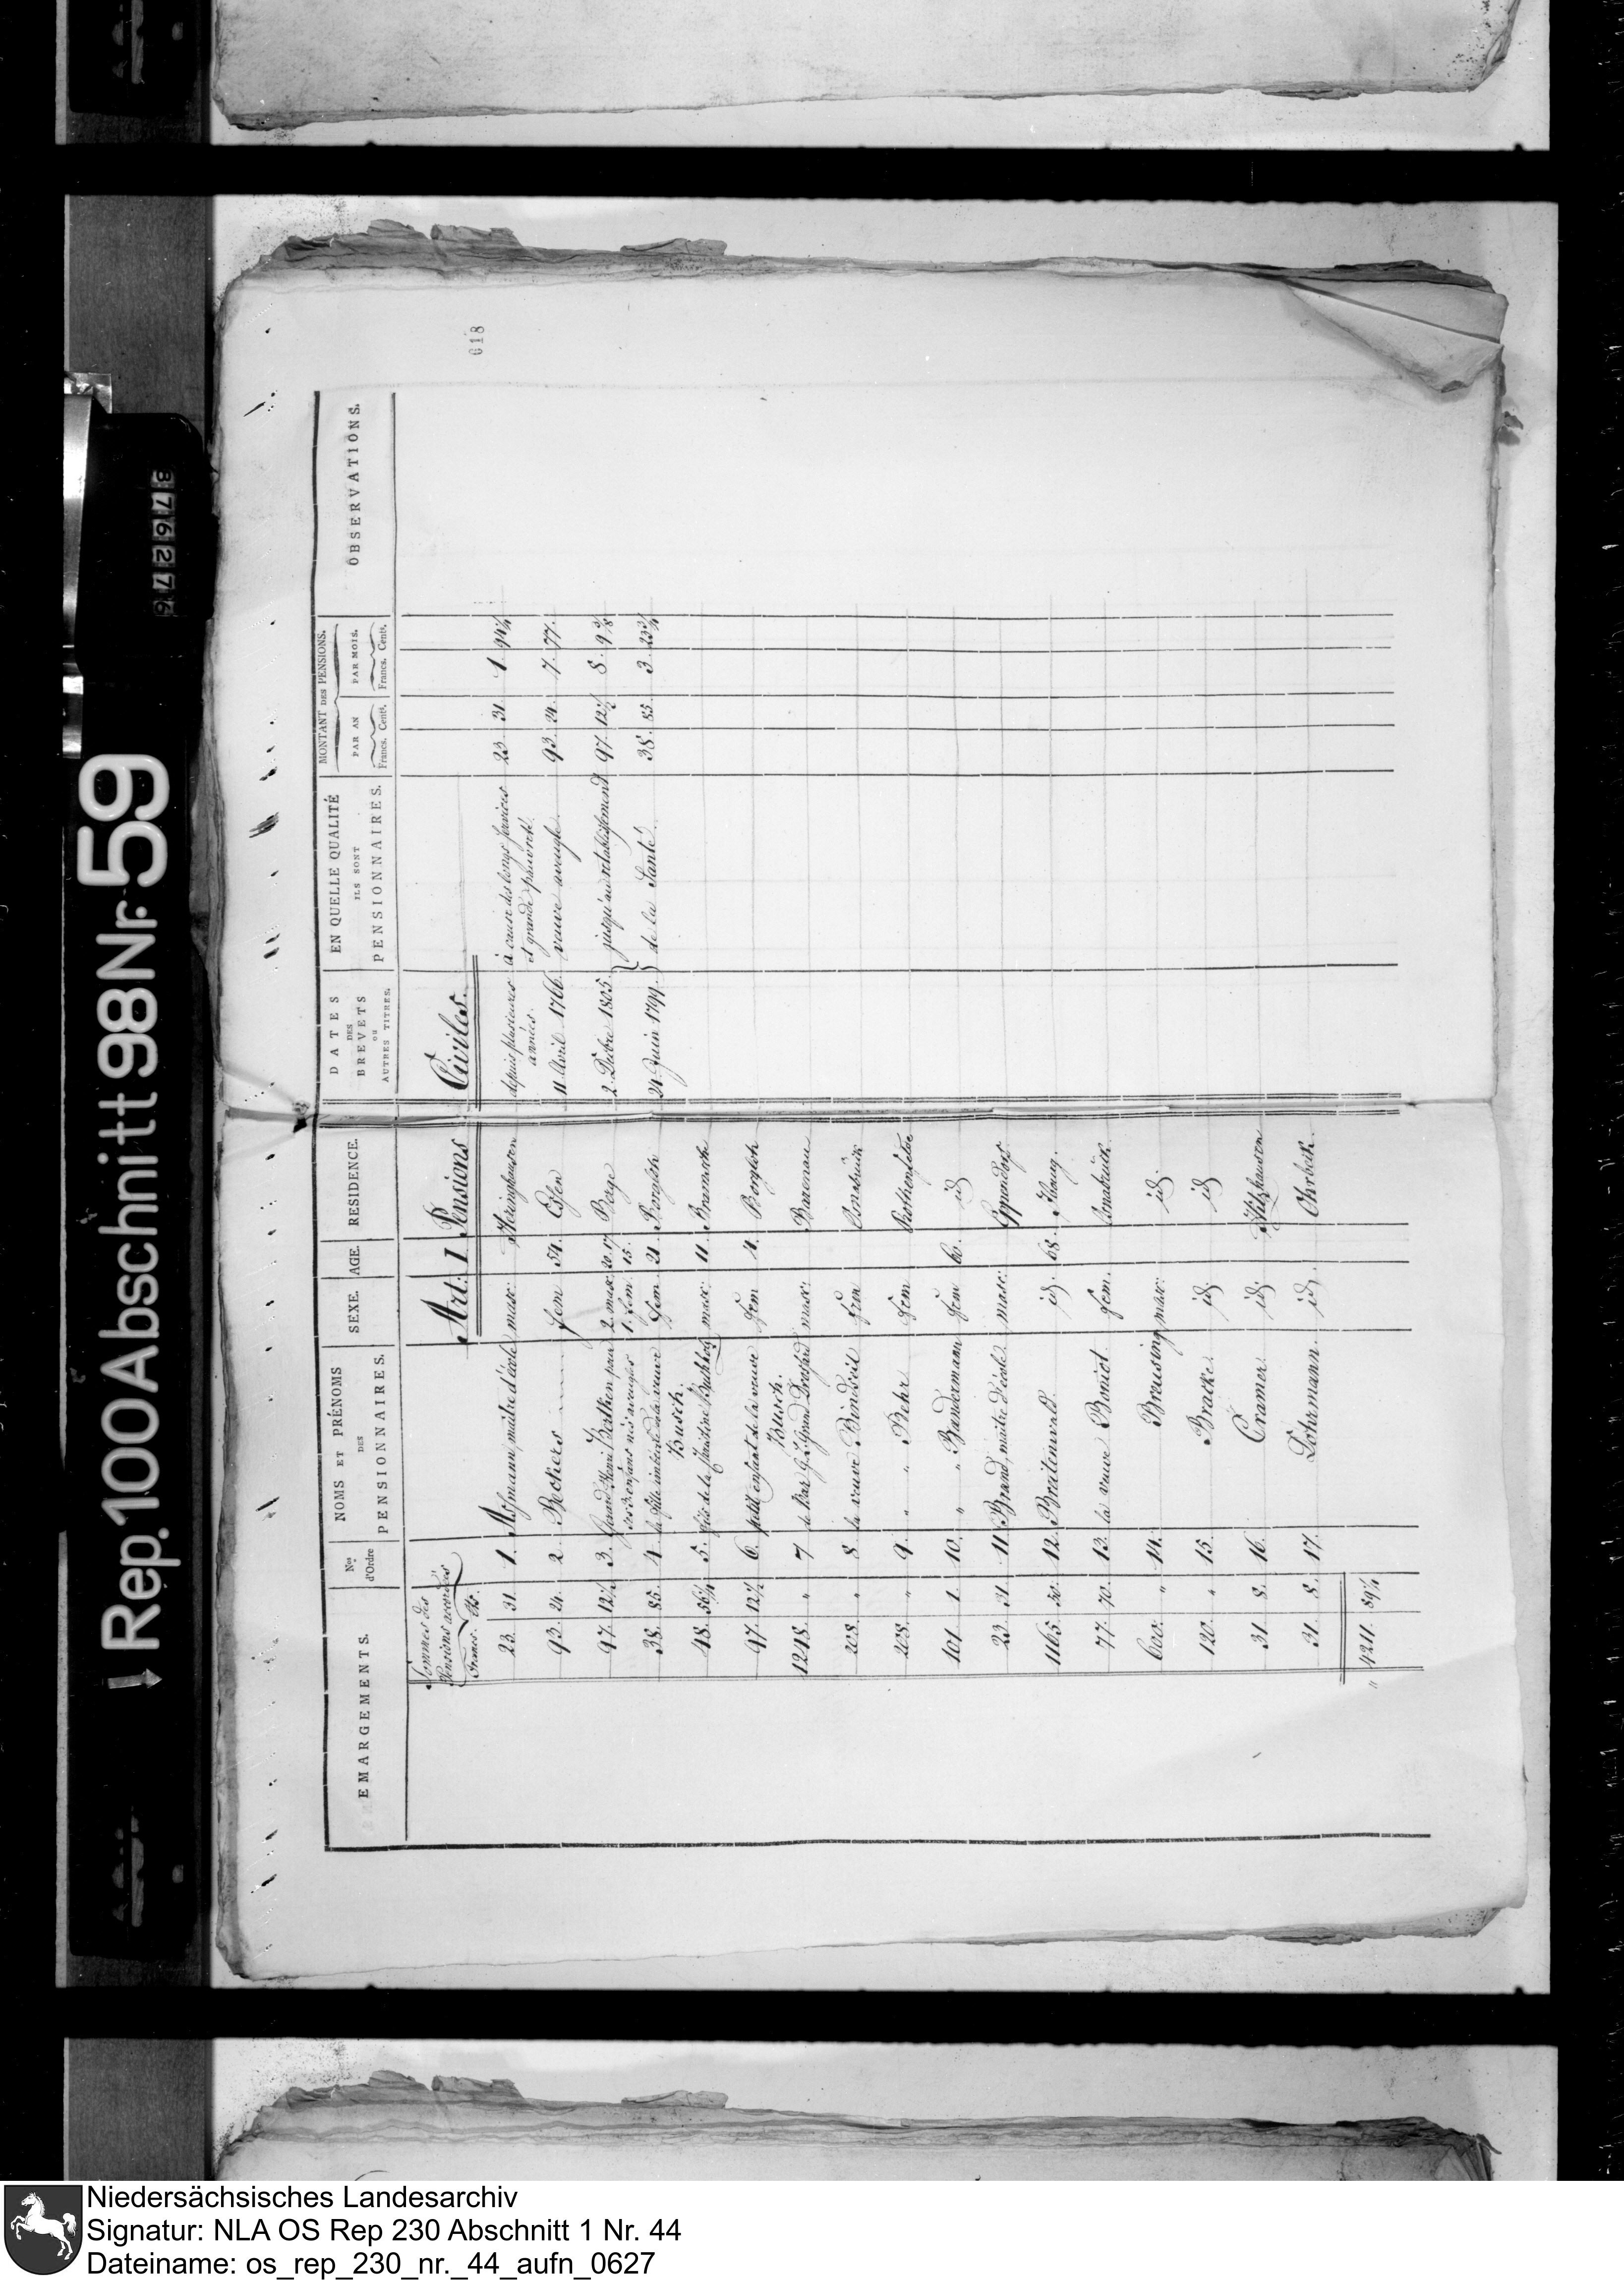 Rep. 100 A Abschnitt 98 Nr. 59
376276
618
EMARGEMENTS.
Nos d'Ordre
NOMS ET PRÉNOMS DES PENSIONNAIRES.
SEXE.
AGE.
RESIDENCE.
DATES DES BREVETS OU AUTRES TITRES.
EN QUELLE QUALITÉ ILS SONT PENSIONNAIRES.
MONTANT DES PENSIONS.
PAR AN Francs. Cents.
PAR MOIS. Francs. Cents.
OBSERVATIONS.
Sommes des Pensions accordées
Francs. Cts.
Art: I Pensions Civiles.
23. 31 1. Assmann, maître d'école masc: Heringhausen depuis plusieures années. à cause des longs services et grande pauvreté. 23. 31. 1. 94¼
93. 24. 2. Beckers fem 54. Essen 11 Avril 1766. veuve aveugle 93. 24. 7. 77.
97. 12½ 3. Henri Berthen pour ses 3 enfans nés aveugles 2 masc: 1. fem. 20. 17 15. Berge 2. Dbre 1805. jusqu'au rétablissement 97. 12½ 8. 9⅜
38. 85. 4. la fille imbécile de la veuve Busch. fem 21 Borgloh 24 Juin 1799. de la Santé 38. 85. 3. 23¾
48. 56¼ 5. fils de la masc: 11. Bramsche
97. 12½ 6. petit enfant de la veuve Busch. fem 4. Borgloh
1248. " 7 de Bar masc: Barenau
208. " 8. la veuve Bindseil fem Osnabrück
208. " 9. " " Behr fem Rothenfelde
101 1. 10. " " Bandermann fem 60. id
23. 31. 11. Brand, maître d'école masc:
1165. 50. 12. Breitenwald. id. 68. Iburg.
77. 70. 13. la veuve Boniol fem. Osnabrück.
600. " 14. Breusing masc: id.
120. " 15. Bracke. id. id
31. 8. 16. Cramer. id. Hitzhausen
31. 8. 17. Löhrmann. id. Ohrbeck.
" 4211. 89¼
Niedersächsisches Landesarchiv
Signatur: NLA OS Rep 230 Abschnitt 1 Nr. 44
Dateiname: os_rep_230_nr._44_aufn_0627